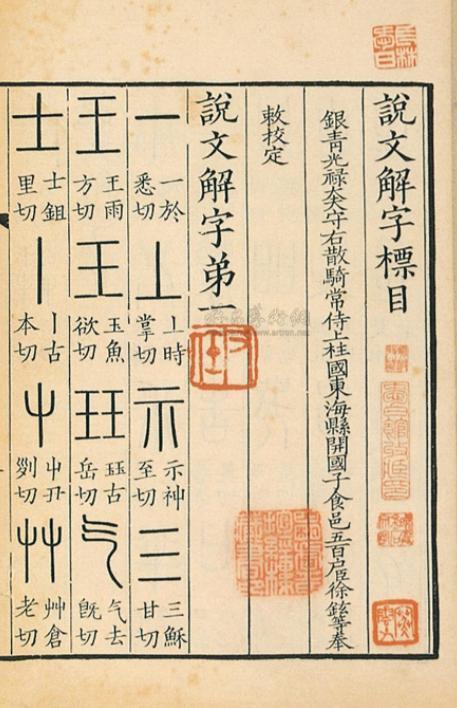 說文解字標目
銀青光祿大夫守右散騎常侍上柱國東海縣開國子食邑五百户臣徐鉉等奉
敕校定
說文解字弟一
一 一於悉切 丄 丄時掌切 示 示神至切 三 三穌甘切
王 王雨方切 玉 玉魚欲切 玨 玨古岳切 气 气去旣切
士 士鉏里切 丨 丨古本切 屮 屮丑列切 艸 艸倉老切